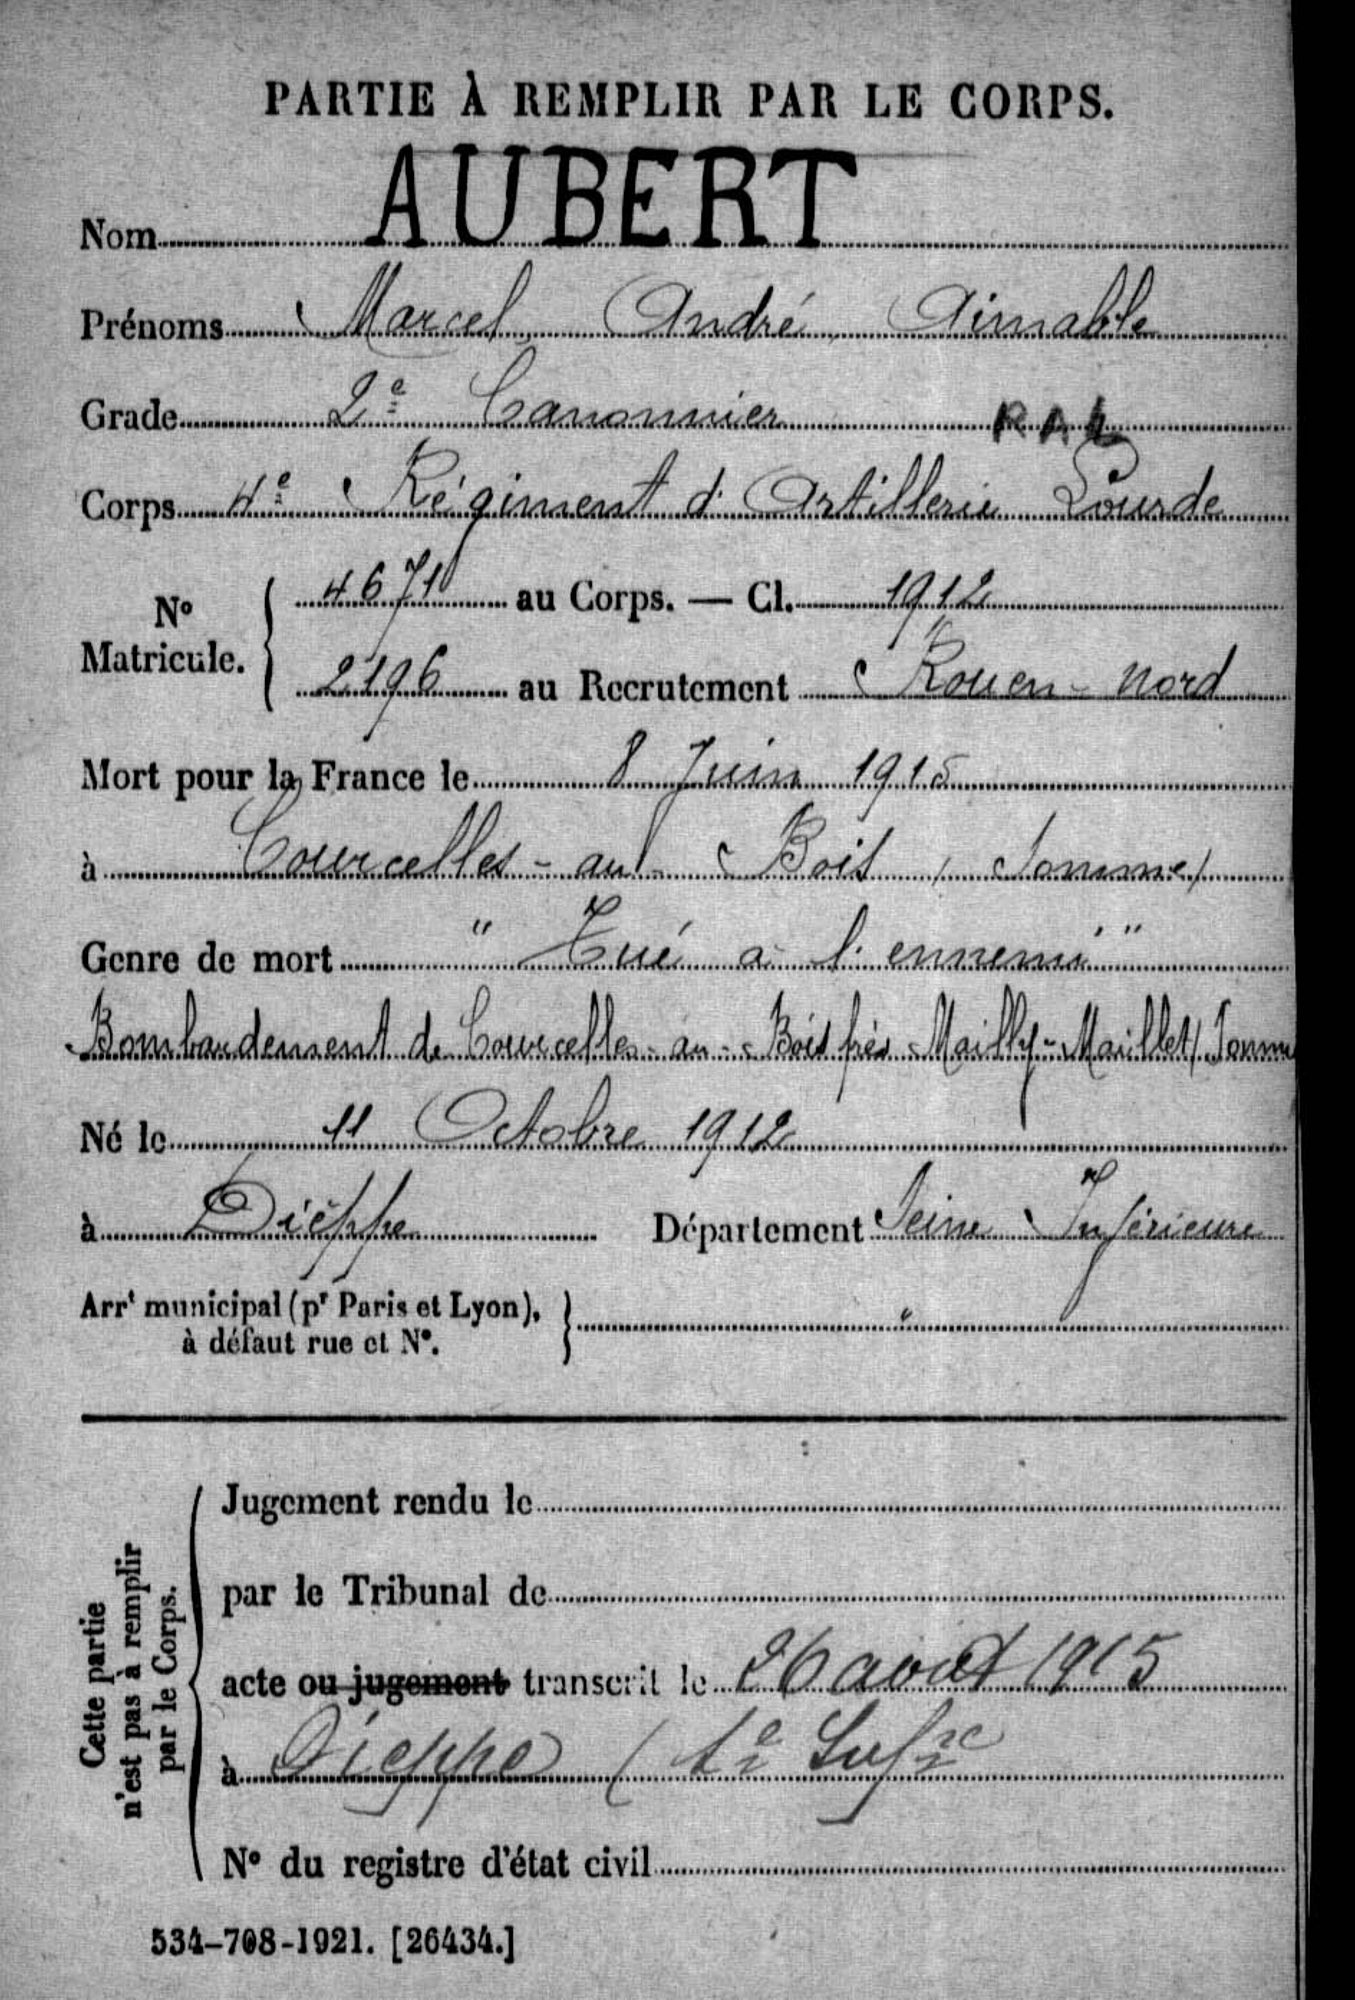 PARTIE À REMPLIR PAR LE CORPS.
Nom AUBERT
Prénoms Marcel André Aimable
Grade 2e Canonnier RAL
Corps 4e Régiment d'Artillerie Lourde
N° Matricule. 4671 au Corps. — Cl. 1912
2196 au Recrutement Rouen-Nord
Mort pour la France le 8 Juin 1915
à Courcelles-au-Bois (Somme)
Genre de mort "Tué à l'ennemi"
Bombardement de Courcelles-au-Bois près Mailly-Maillet (Somme
Né le 11 Octobre 1912
à Dièppe Département Seine Inférieure
Arrt municipal (pr Paris et Lyon), à défaut rue et N°. "
Cette partie n'est pas à remplir par le Corps.
Jugement rendu le
par le Tribunal de
acte ou jugement transcrit le 26 août 1915
à Dieppe (Se Infre
N° du registre d'état civil
534-708-1921. [26434.]